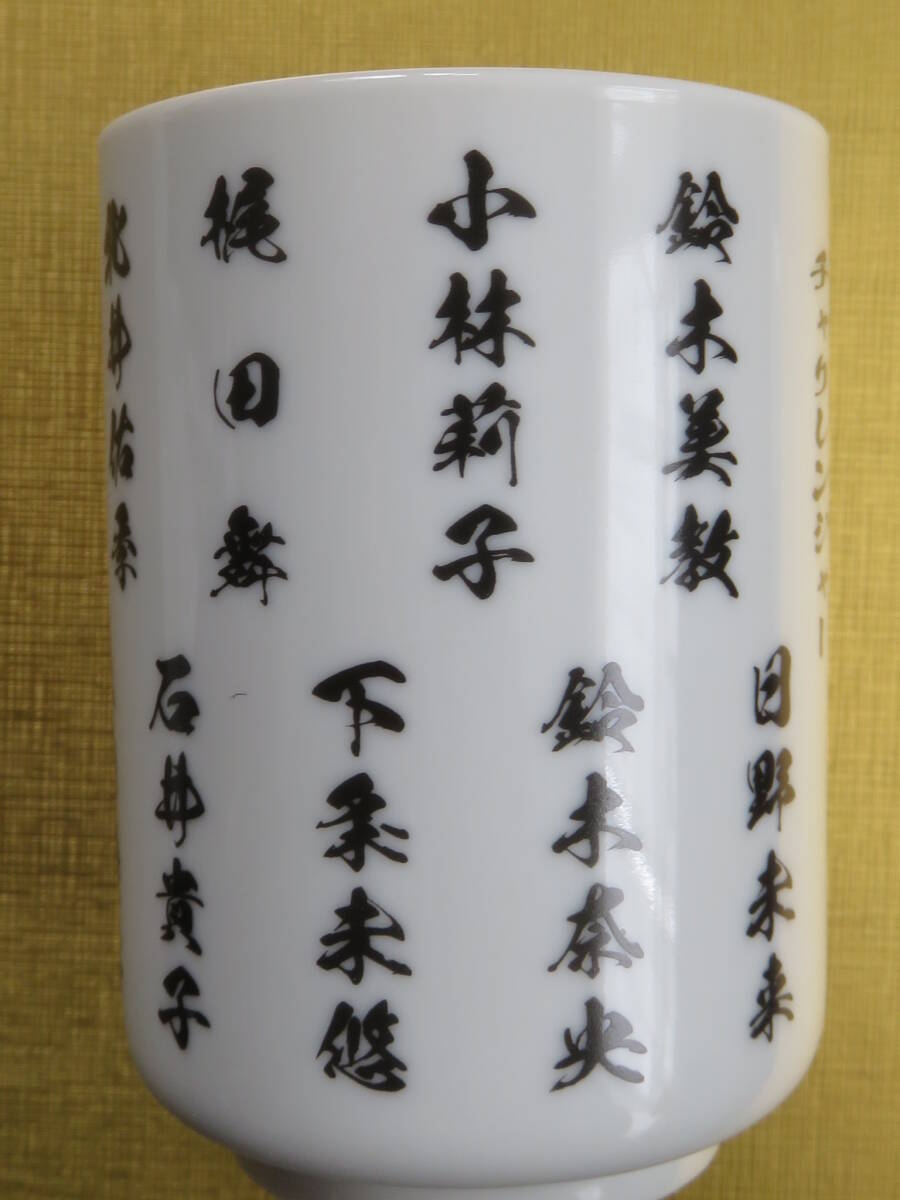 チャリレンジャー
鈴木美教
小林莉子
梶田舞
荒井佑季
日野未来
鈴木奈央
下条未悠
石井貴子